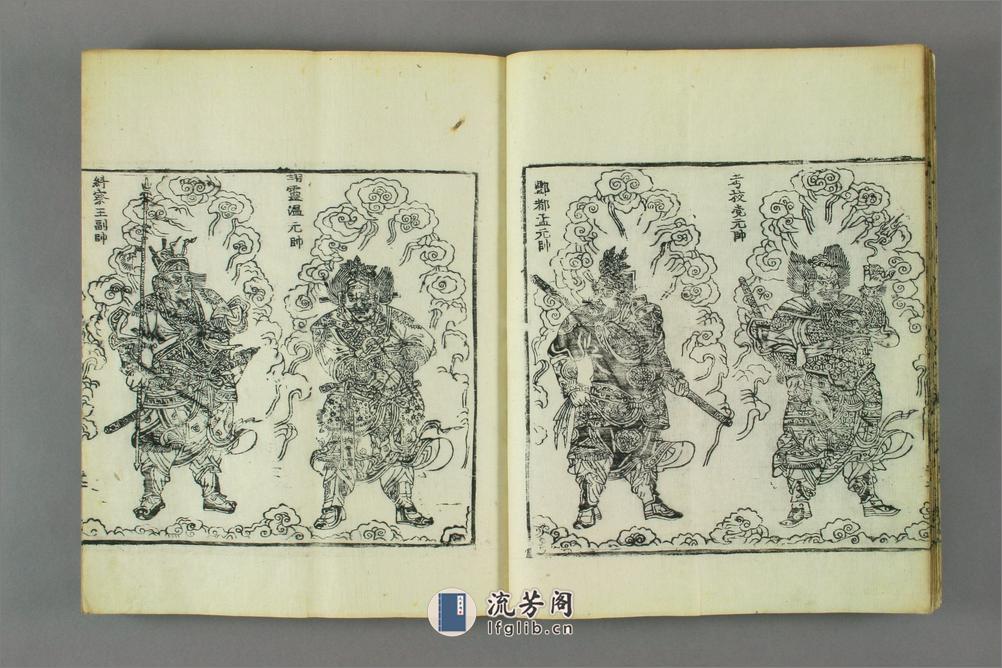 考校党元帥
酆都孟元帥
翊靈溫元帥
糾察王副帥
流芳阁
lfglib.cn